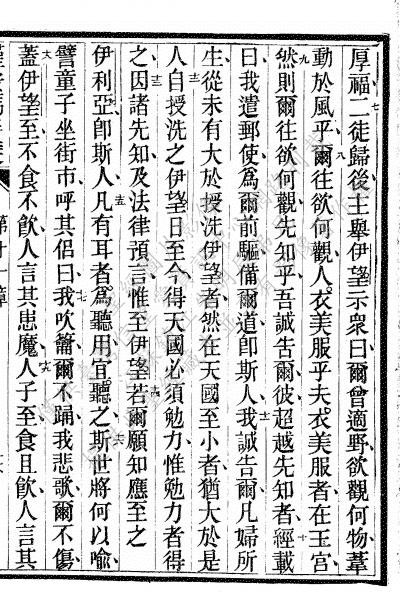 厚福二徒歸後主與伊望示衆曰爾曾適野欲觀何物葦
動於風乎爾往欲何觀人衣美服乎夫衣美服者在玉宮
然則爾往欲何觀先知乎吾誠告爾彼超越先知者經載
曰我遣郵使爲爾前驅備爾道卽斯人我誠告爾凡婦所
生從未有大於授洗伊望者然在天國至小者猶大於是
人自授洗之伊望日至今得天國必須勉力惟勉力者得
之因諸先知及法律預言惟至伊望若爾願知應至之
伊利亞卽斯人凡有耳者爲聽用宜聽之斯世將何以喩
譬童子坐街市呼其侶曰我吹簫爾不踊我悲歌爾不傷
蓋伊望至不食不飮人言其患魔人子至食且飮人言其
第十一章